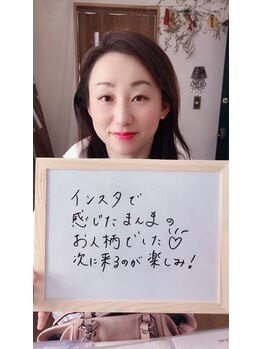 インスタで
感じたまんまの
お人柄でした♡
次に来るのが楽しみ!